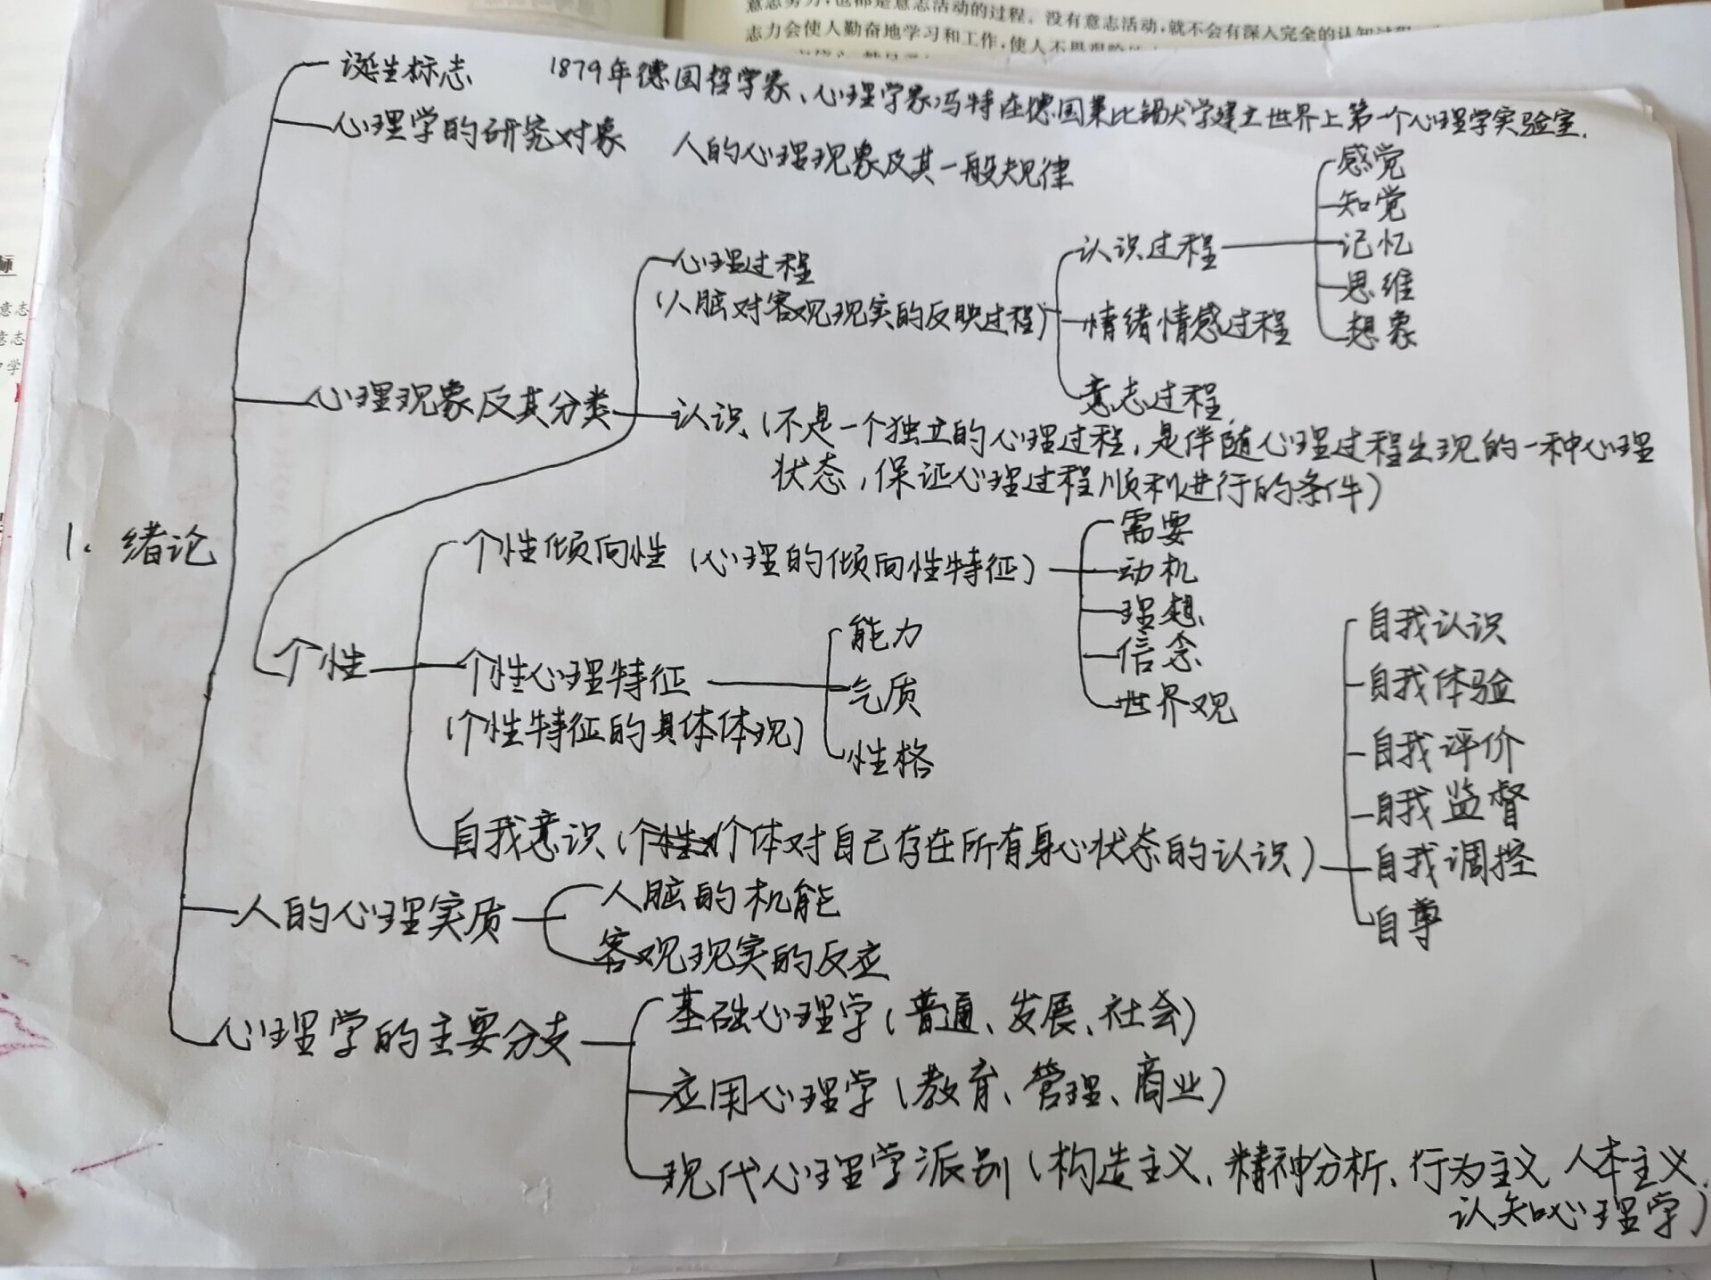 意志努力,也都是意志活动的过程。没有意志活动,就不会有深入完全的认知过程
志力会使人勤奋地学习和工作,使人不畏艰险
师
意志
意志
学
诞生标志 1879年德国哲学家、心理学家冯特在德国莱比锡大学建立世界上第一个心理学实验室.
心理学的研究对象 人的心理现象及其一般规律
1. 绪论
心理现象及其分类
心理过程
(人脑对客观现实的反映过程)
认识过程
感觉
知觉
记忆
思维
想象
情绪情感过程
意志过程
认识(不是一个独立的心理过程,是伴随心理过程出现的一种心理
状态,保证心理过程顺利进行的条件)
个性
个性倾向性(心理的倾向性特征)
需要
动机
理想
信念
世界观
个性心理特征
(个性特征的具体体现)
能力
气质
性格
自我意识(个体对自己存在所有身心状态的认识)
自我认识
自我体验
自我评价
自我监督
自我调控
自尊
人的心理实质
人脑的机能
客观现实的反应
心理学的主要分支
基础心理学(普通、发展、社会)
应用心理学(教育、管理、商业)
现代心理学派别(构造主义、精神分析、行为主义 人本主义、
认知心理学)